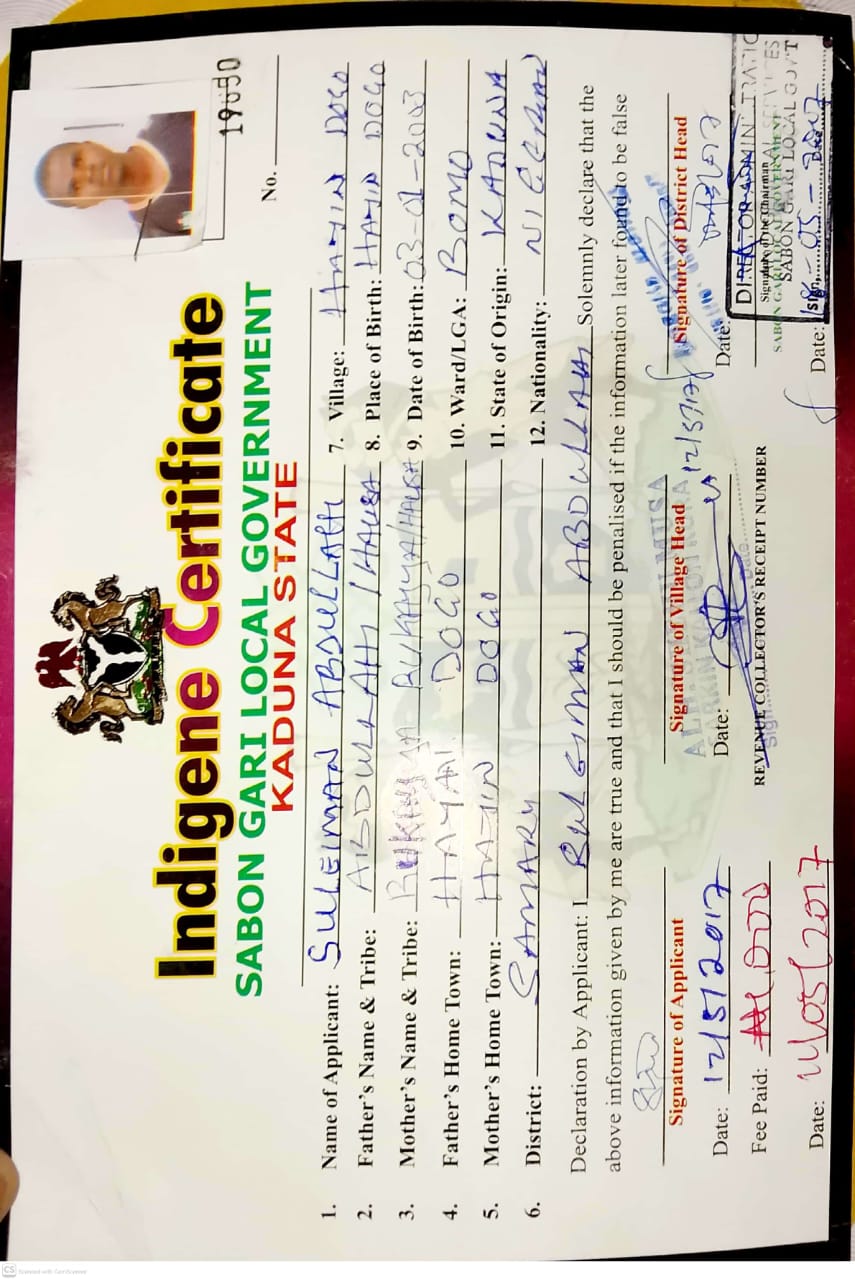 19050
No.
Indigene Certificate
SABON GARI LOCAL GOVERNMENT
KADUNA STATE
1. Name of Applicant: SULEIMAN ABDULLAHI
2. Father's Name & Tribe: ABDULLAHI / HAUSA
3. Mother's Name & Tribe: RUKAYYA/HAUSA
4. Father's Home Town: HAYAN DOGO
5. Mother's Home Town: HAYIN DOGO
6. District: SAMARU
7. Village: HAYIN DOGO
8. Place of Birth: HAYIN DOGO
9. Date of Birth: 03-01-2003
10. Ward/LGA: BOMO
11. State of Origin: KADUNA
12. Nationality: NIGERIAN
Declaration by Applicant: I ABDULLAHI Solemnly declare that the
above information given by me are true and that I should be penalised if the information later found to be false
Signature of Applicant
Date: 12/5/2017
Fee Paid:
Date: 11/05/2017
Signature of Village Head
Date:
REVENUE COLLECTOR'S RECEIPT NUMBER
12/5/17
Signature of District Head
Date:
DIRECTOR ADMIN
Signature of the Chairman
SABON GARI LOCAL GOVERNMENT
SABON GARI LOCAL GOV'T
Sign
Date: 18-05-2017
CS Scanned with CamScanner